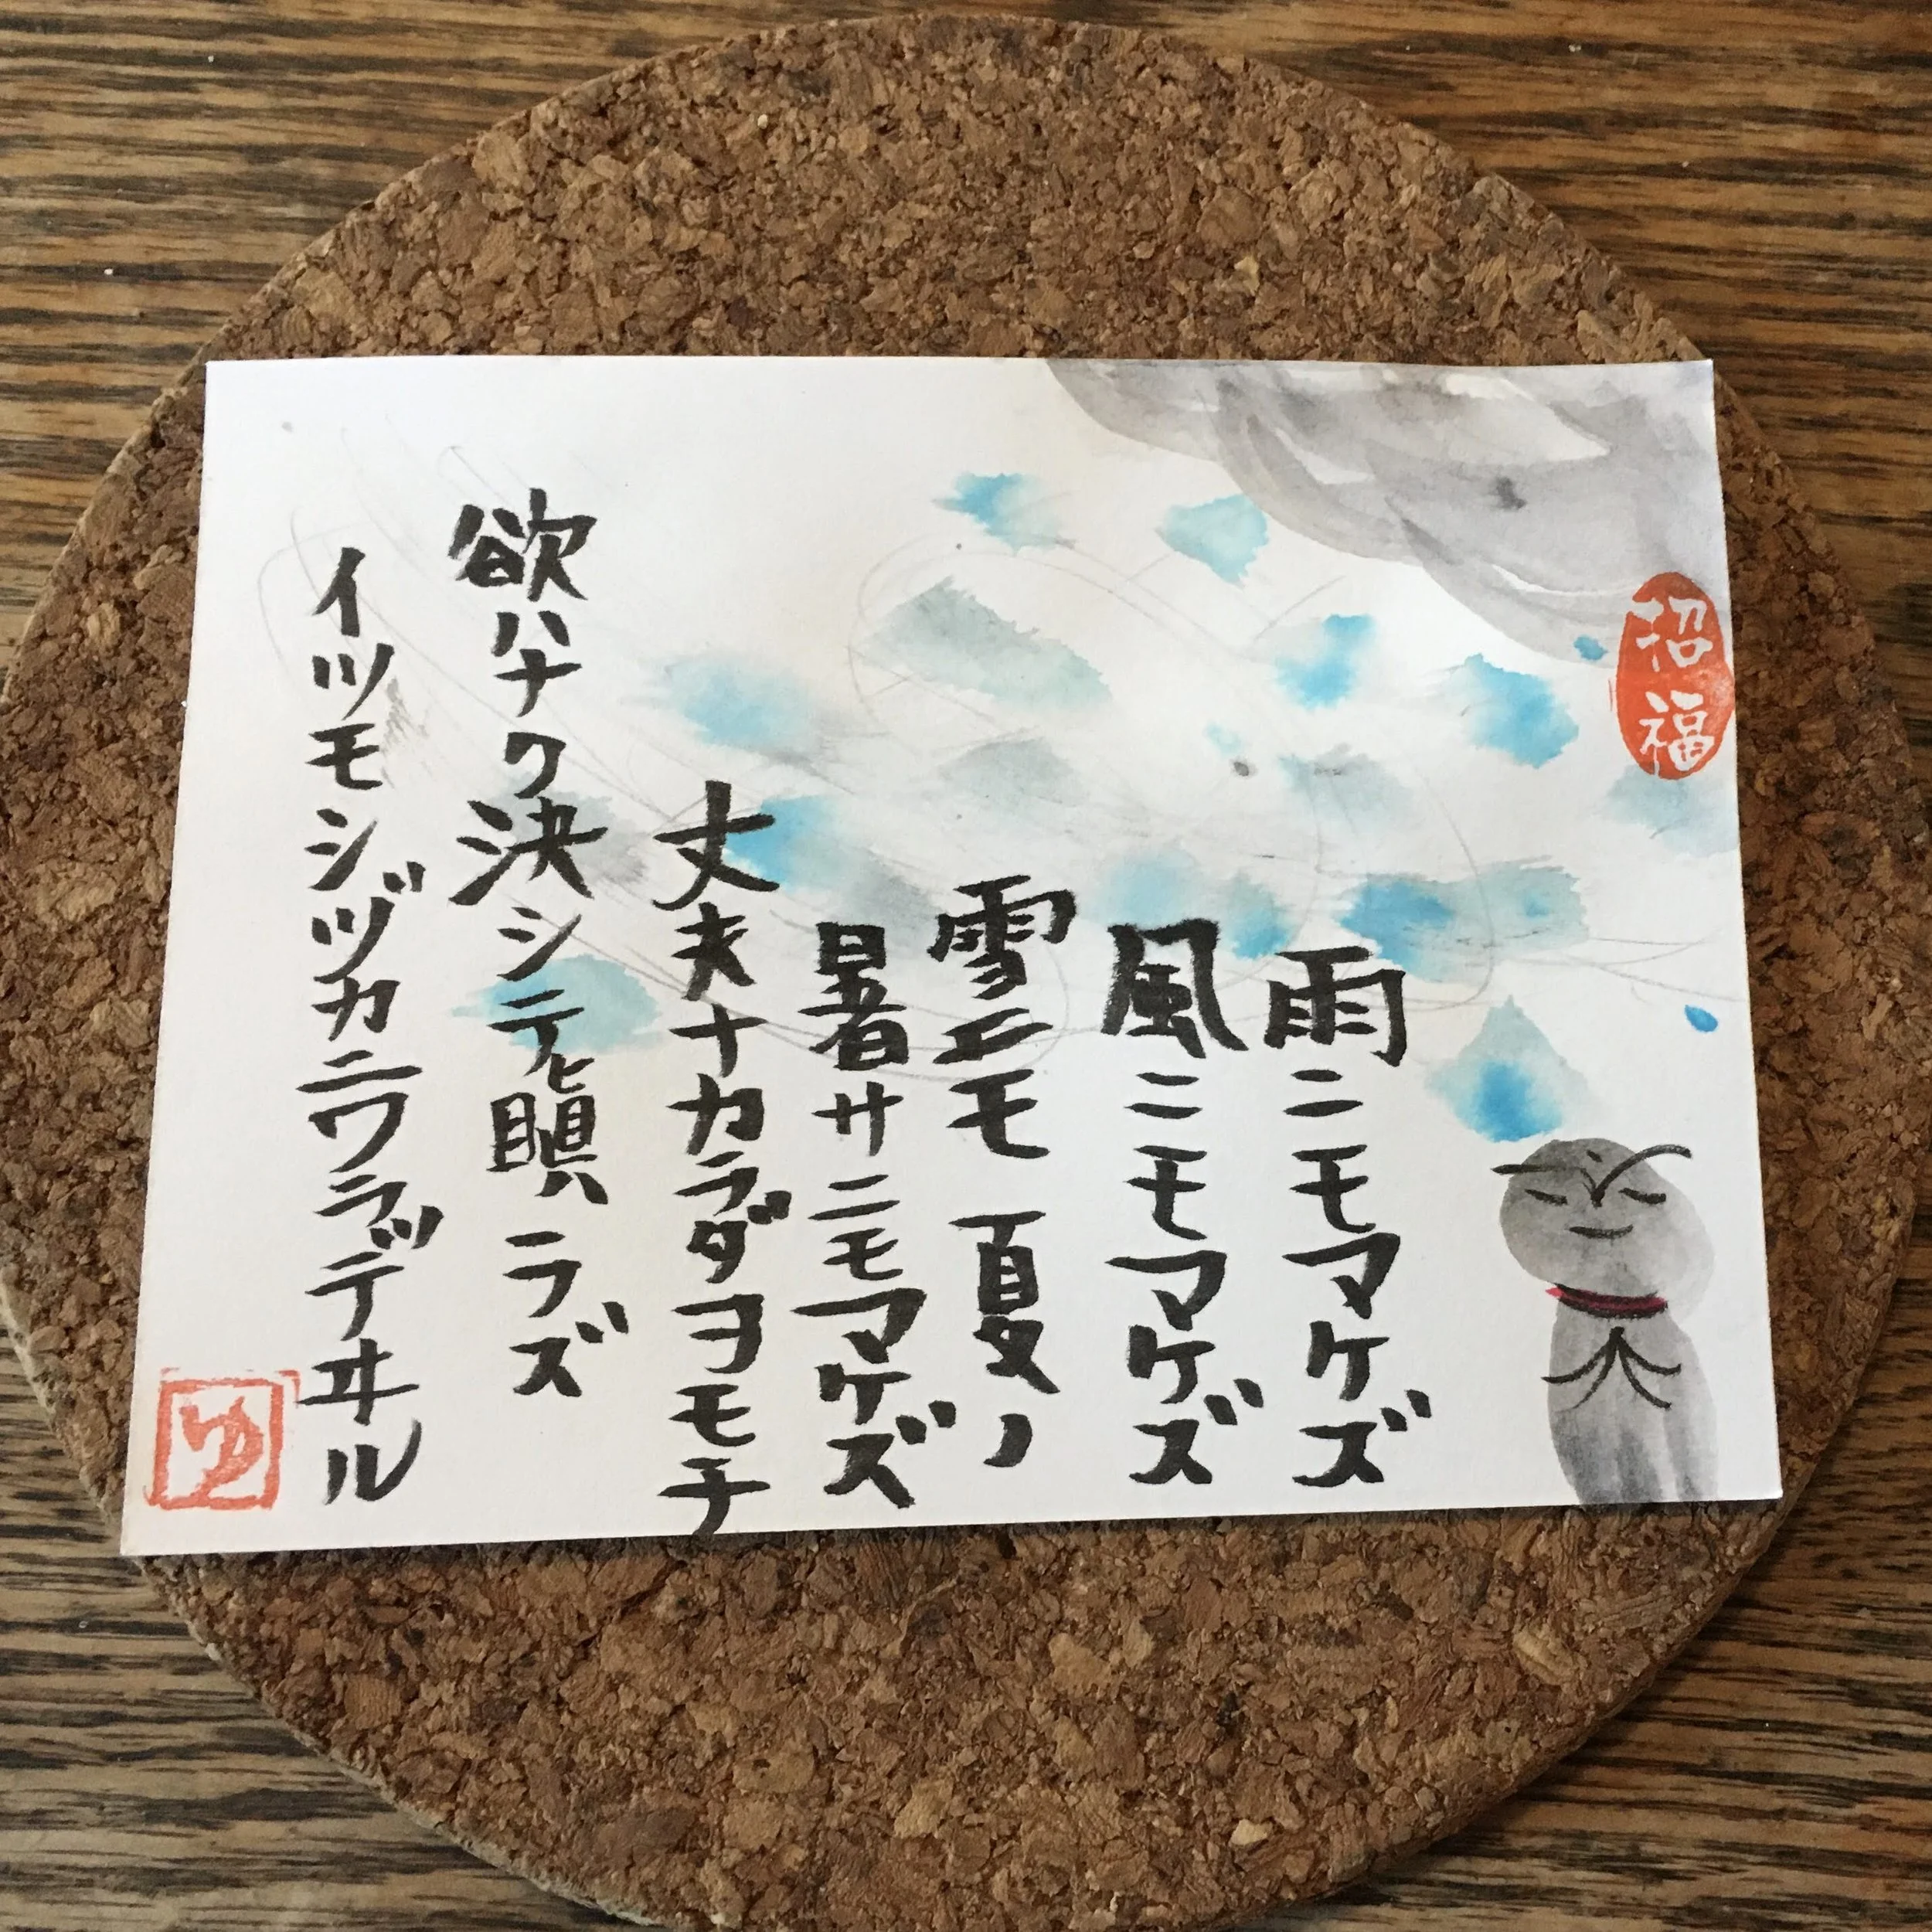 招福
雨ニモマケズ
風ニモマケズ
雪ニモ夏ノ
暑サニモマケズ
丈夫ナカラダヲモチ
欲ハナク決シテ瞋ラズ
イツモシヅカニワラッテヰル
ゆ